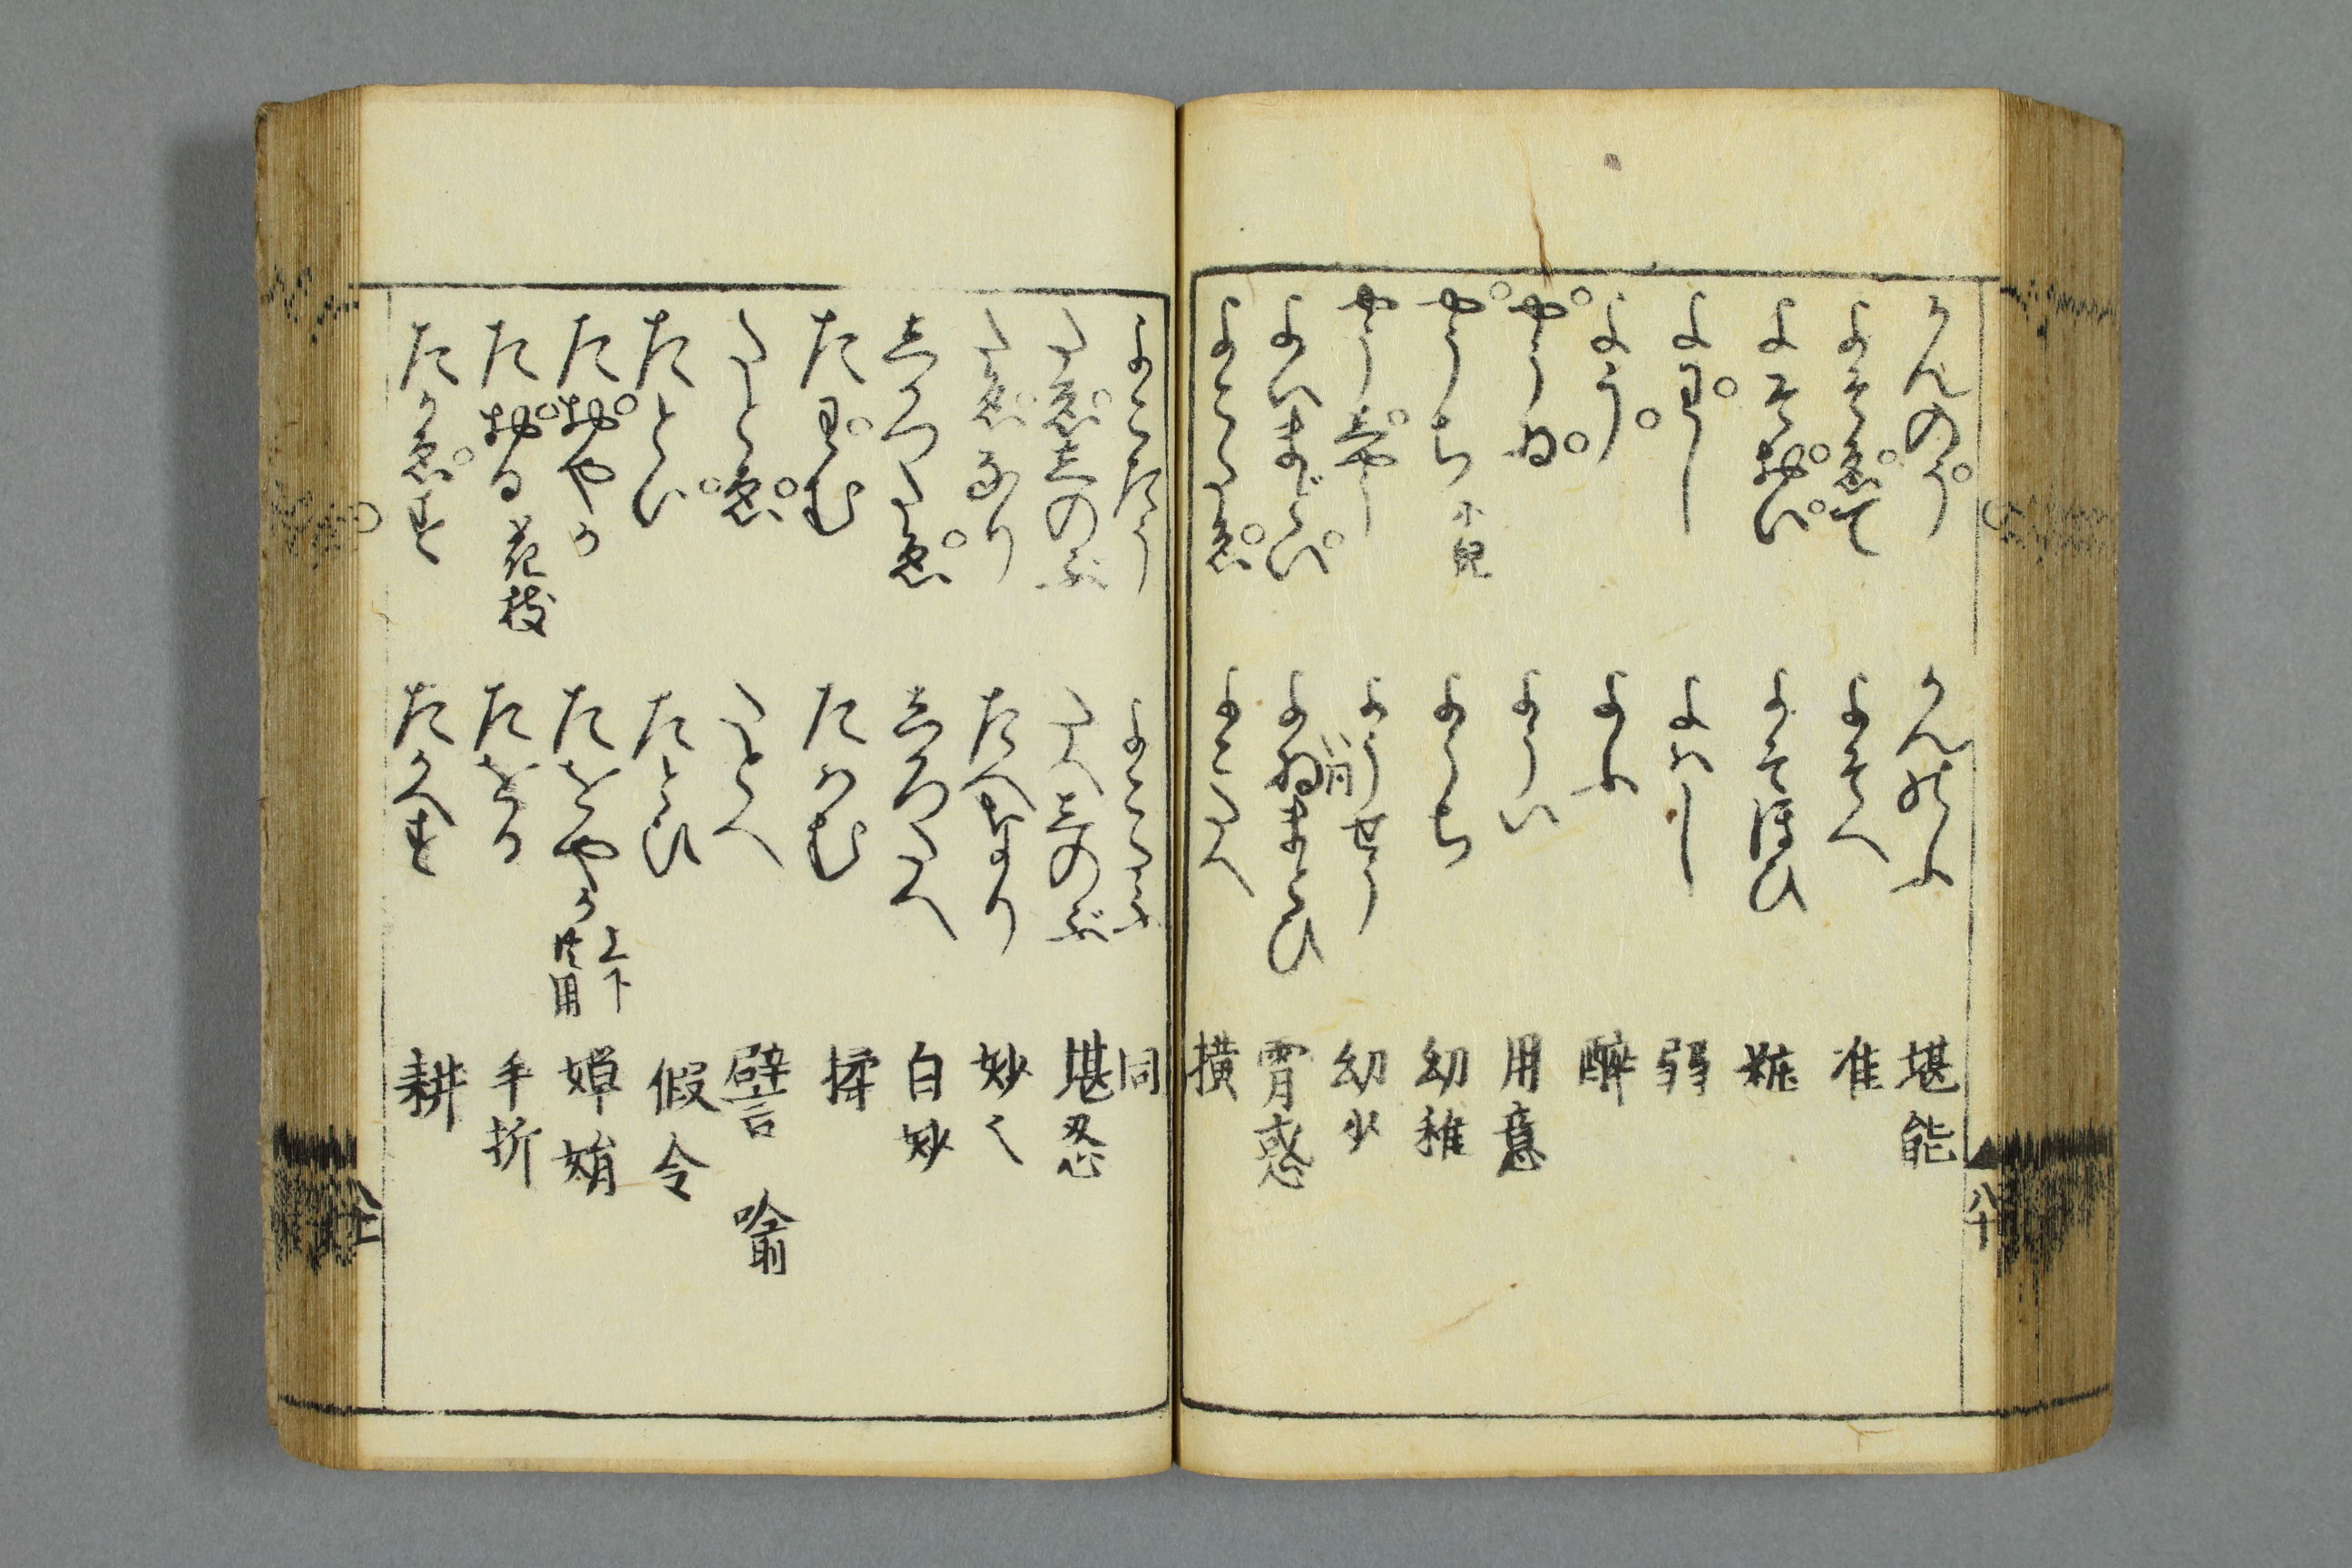 かんのう かんのふ 堪能
よそゑて よそへ 准
よそおい よそほひ 粧
よわし よはし 弱
よう よふ 酔
やうゐ ようい 用意
やうち 小児 ようち 幼稚
やうしやう ようせう 幼少
よいまどい よゐまとひ 宵惑
よこたゑ よこたへ 横
八十
よこたう よこたふ 同
たゑしのぶ たへしのぶ 堪忍
たゑなり たへなり 妙々
しろたゑ しろたへ 白妙
たわむ たはむ 揉
たとゑ たとへ 譬 喩
たとい たとひ 假令
たおやか たをやか 上下共用 嬋娟
たおる 花枝 たをる 手折
たかゑす たかへす 耕
八十一